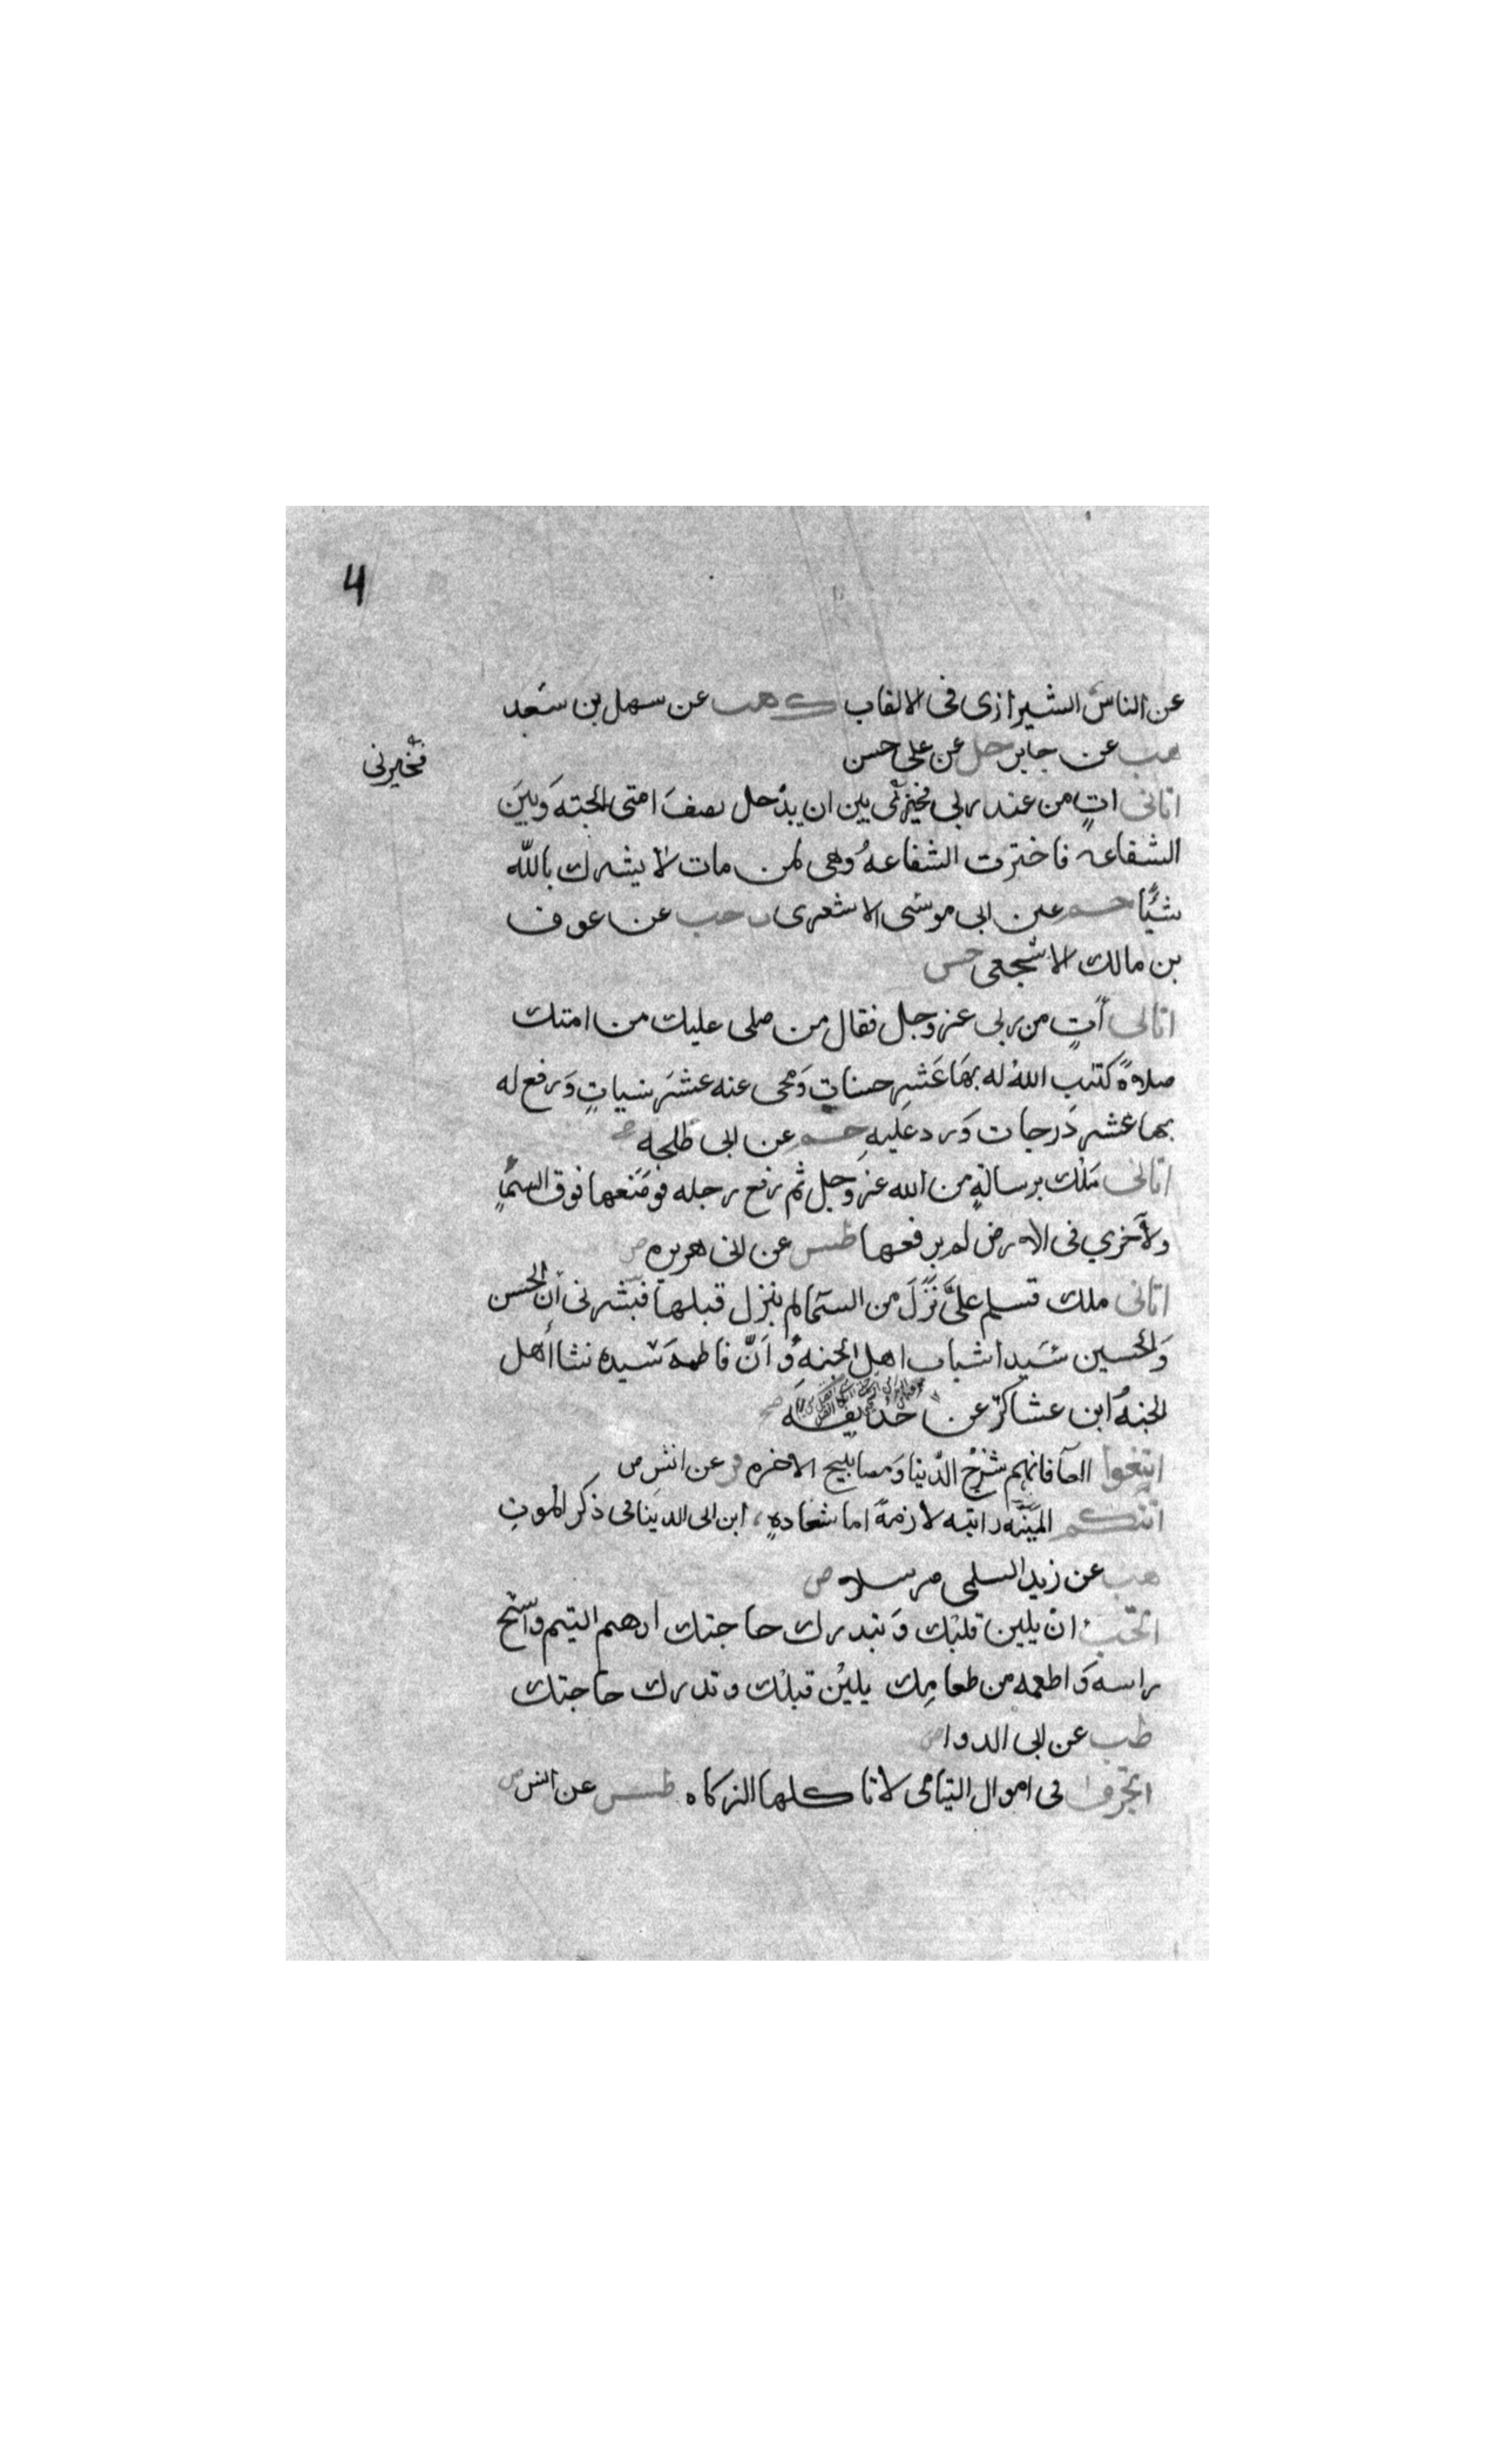 4
عن الناس الشيرازى فى الالقاب ك هب عن سهل بن سَعد
هب عن جابر حل عن على حسن
فخيرنى
اتانى اتٍ من عند ربى فخيرنى بين ان يدُخل نصفَ امتى الجنة وَبينَ
الشفاعه فاخترت الشفاعهُ وهى لمن مات لا يشرك بالله
شيًا حم عن ابى موسَى الاشعرى ت حب عن عوف
بن مالك الاشجعى حسن
اتانى أتٍ من ربى عز وجل فقال من صلى عليك من امتك
صلاةً كتب اللهُ له بهَا عَشر حسناتٍ وَمحى عنه عشَر سَياتٍ وَرفع له
بها عشر دَرجات وَرد عَليهِ حم عن ابى طلحه صح
اتانى مَلك برسالةٍ من الله عز وجل ثم رَفع رجله فوضَعها فوق السمَاٍ
ولاخري فى الارض لم يرفعها طس عن ابى هريره ض
اتانى ملك فسلم علىَّ نَزَلَ من السمَا لم ينزل قبلها فبَشرنى أن الحسن
وَالحسين سَيدا شباب اهل الجنهِ وَ اَنّ فاطمهَ سَيده نسَا أهل
الجنهُ ابن عسَاكر عن حُذَيفَه صح
اتبعوا العلآ فانهم سُرُج الدُنيا وَمصابيح الاخره فر عن انسٍ ض
اتتكم المَنيَّه راتبه لازمةً اما شقا ده ابن ابى الدينا فى ذكر الموتِ
هب عن زيد السلمى مرسلا ض
اتحب ان يلين قلبك وَتدرك حاجتك ارحم اليتيم وامسَح
راسه وَاطعمه من طعامِك يلين قبلك وتدرك حاجتك
طب عن ابى الدردا ض
اتجروا فى اموال اليتامى لا تاكلها الزكاه طس عن انس ض